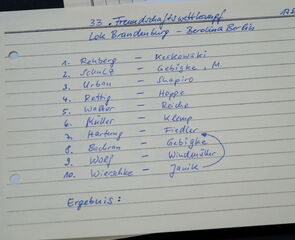 33. Freundschaftswettkampf
Lok Brandenburg - Berolina Berlin
1. Rehberg - Keskowski
2. Schulz - Gebigke, M.
3. Urban - Shapiro
4. Rettig - Hoppe
5. Walter - Reiche
6. Müller - Klemp
7. Hartung - Fiedler
8. Bochran - Gebigke
9. Wolf - Windmüller
10. Wierschke - Janik
Ergebnis: